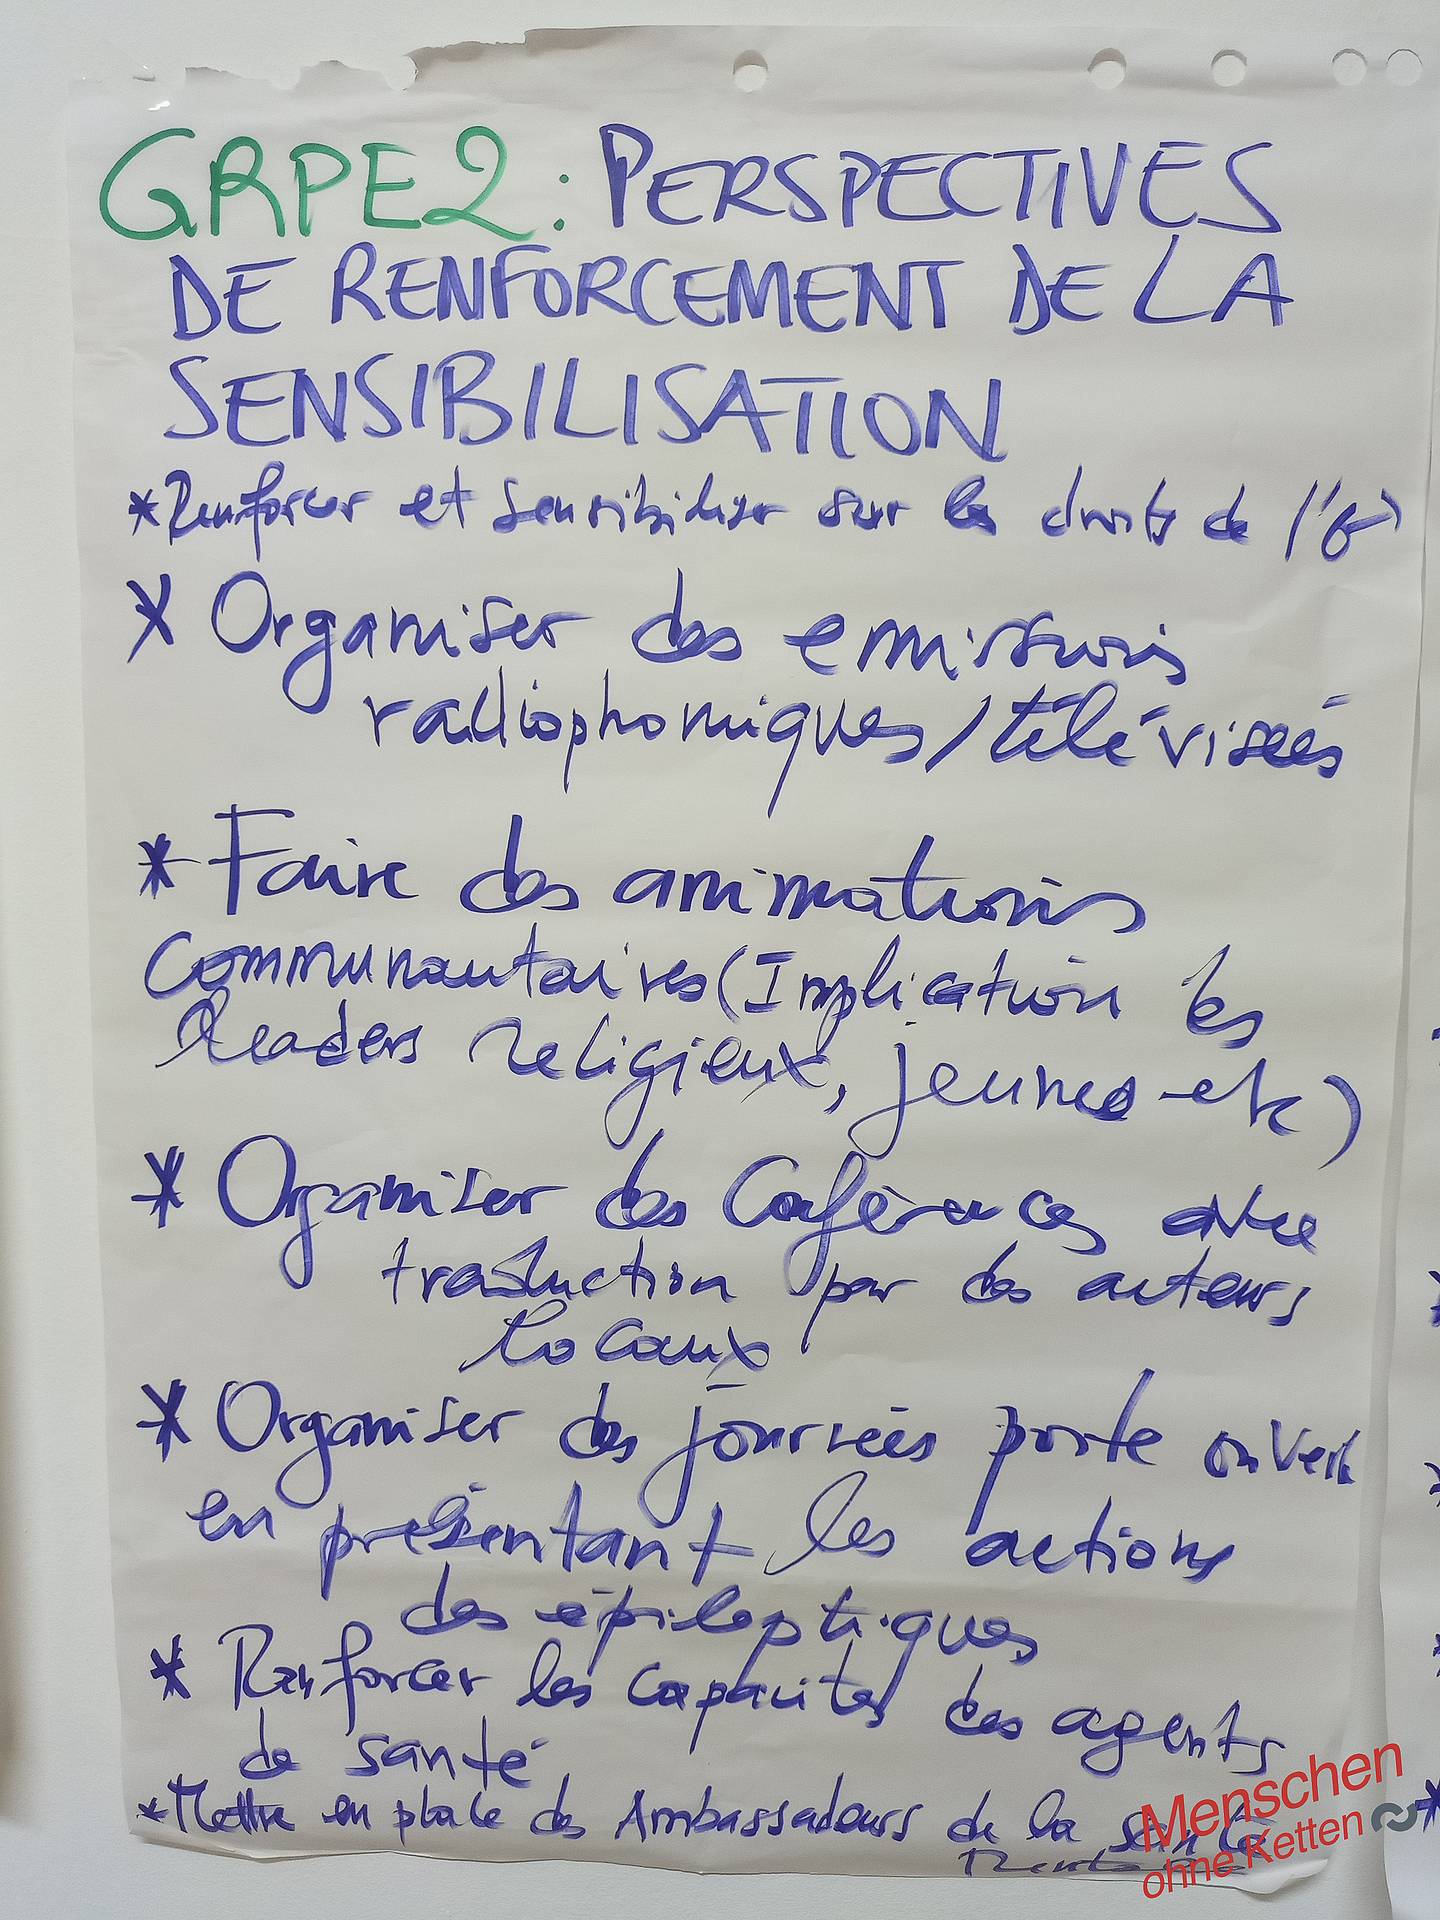 GRPE2 : PERSPECTIVES
DE RENFORCEMENT DE LA
SENSIBILISATION
*Renforcer et sensibiliser sur les droits de l'
* Organiser des emissions
radiophoniques/télévisées
* Faire des animations
Communautaires (Implication les
leaders religieux, jeunes etc)
* Organiser des Coférences avec
traduction par des acteurs
locaux
* Organiser des journées porte ouvert
en présentant les actions
des épileptiques
* Renforcer les capacités des agents
de santé
*Mettre en place des Ambassadeurs de la santé
Menschen
ohne Ketten